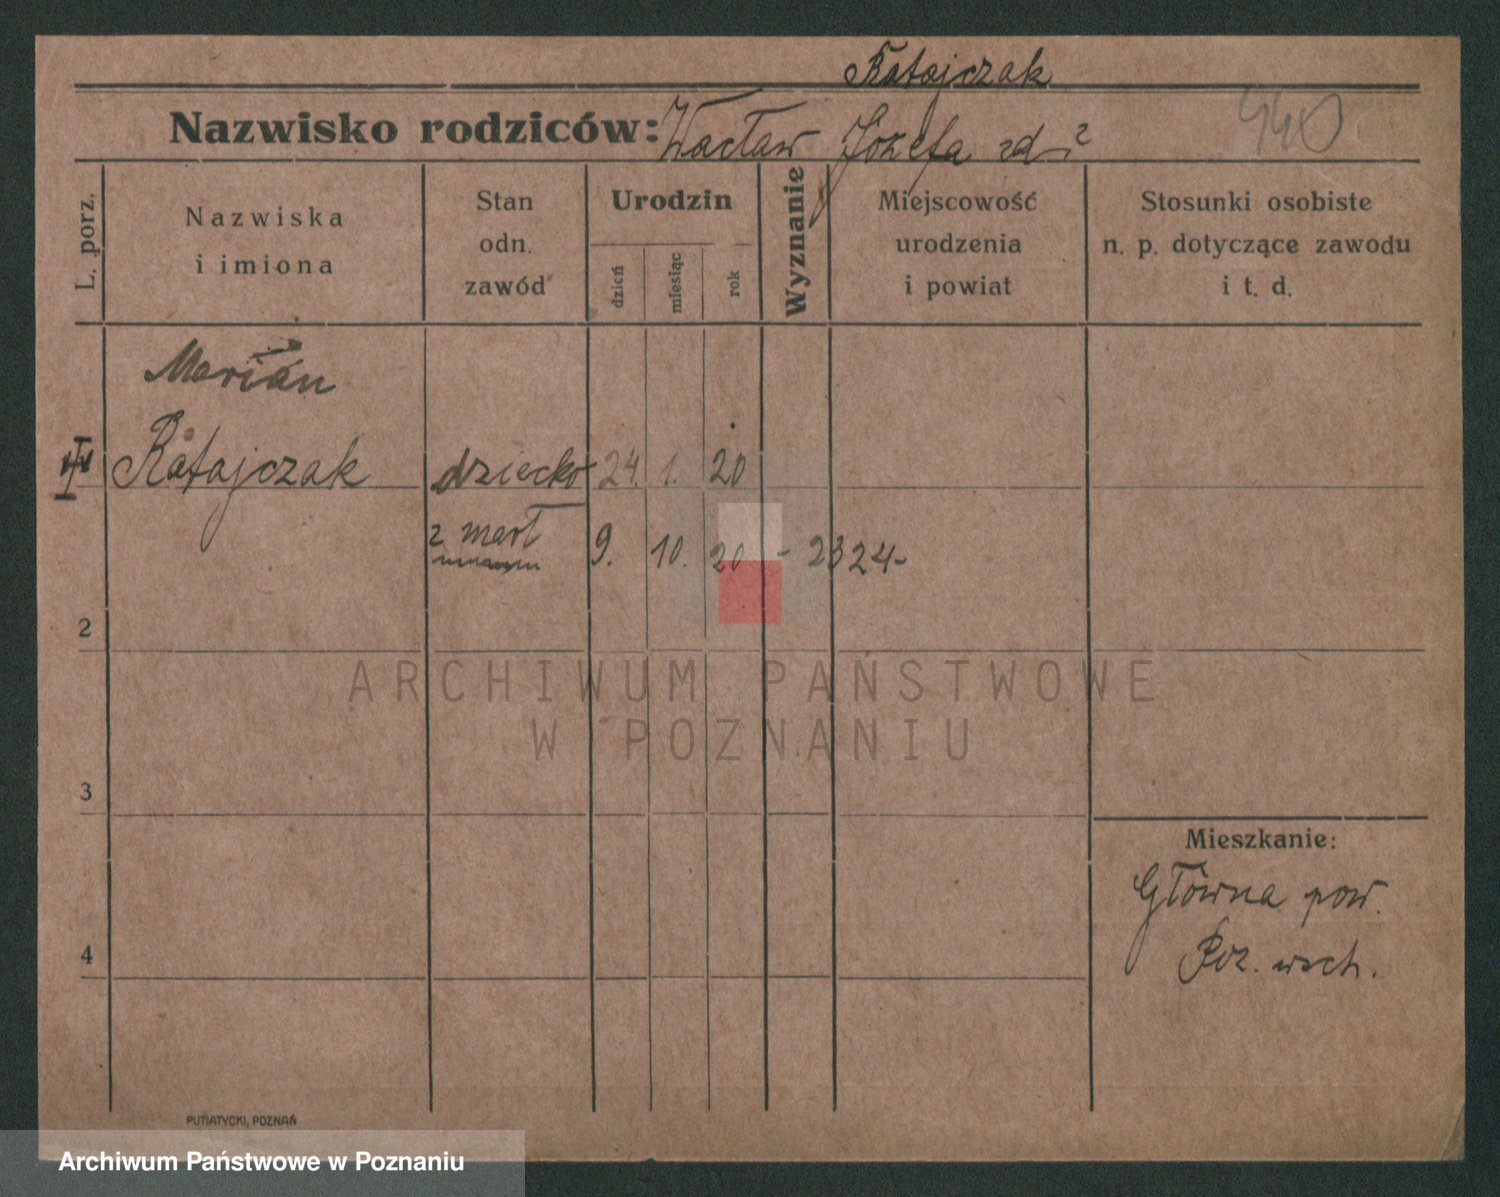 Ratajczak
Nazwisko rodziców: Wacław Józefa zd
440
L. porz.
Nazwiska
i imiona
Stan
odn.
zawód
Urodzin
dzień
miesiąc
rok
Wyznanie
Miejscowość
urodzenia
i powiat
Stosunki osobiste
n. p. dotyczące zawodu
i t. d.
Marian
Ratajczak dziecko 24. 1. 20
zmarł 9. 10. 20 - 2324-
2
3
4
Mieszkanie:
Główna pow.
Poz. wsch.
ARCHIWUM PAŃSTWOWE
W POZNANIU
PUTIATYCKI, POZNAŃ
Archiwum Państwowe w Poznaniu